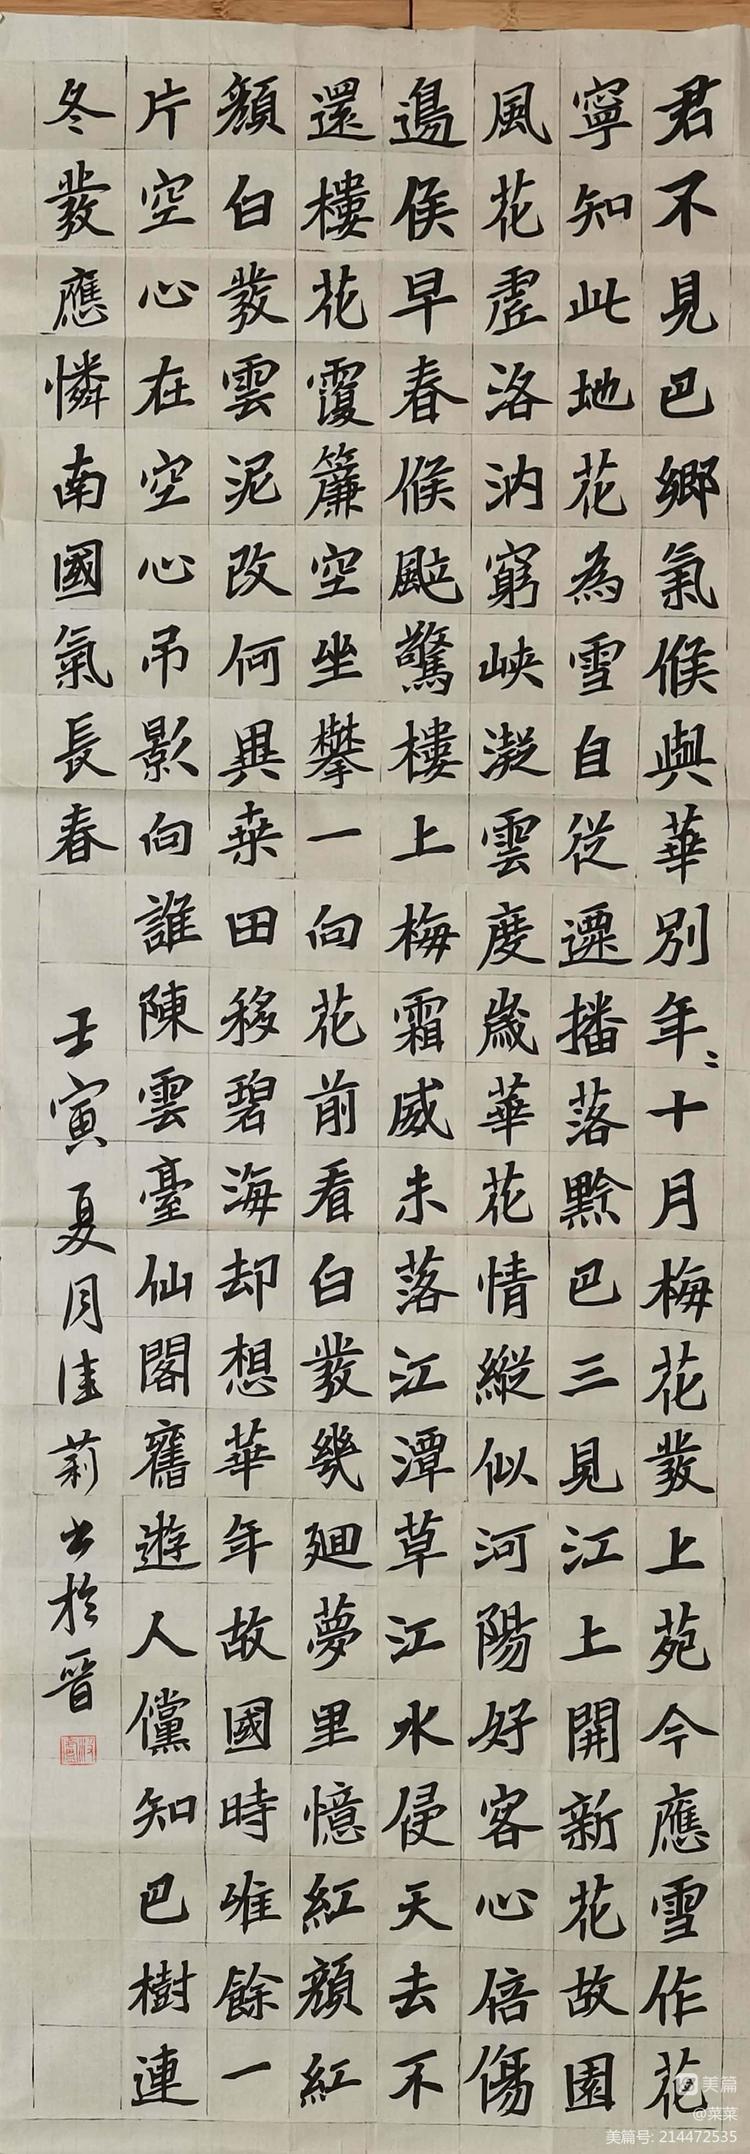 君不見巴鄉氣候與華別年〻十月梅花發上苑今應雪作花
寧知此地花為雪自從遷播落黔巴三見江上開新花故園
風花虛洛汭窮峽凝雲度歲華花情縱似河陽好客心倍傷
邊候早春候飈驚樓上梅霜威未落江潭草江水侵天去不
還樓花覆簾空坐攀一向花前看白發幾迴夢里憶紅顏紅
顏白發雲泥改何異桑田移碧海却想華年故國時唯餘一
片空心在空心吊影向誰陳雲臺仙閣舊遊人儻知巴樹連
冬發應憐南國氣長春
壬寅夏月佳莉書於晉
美篇
@菜菜
美篇号: 214472535